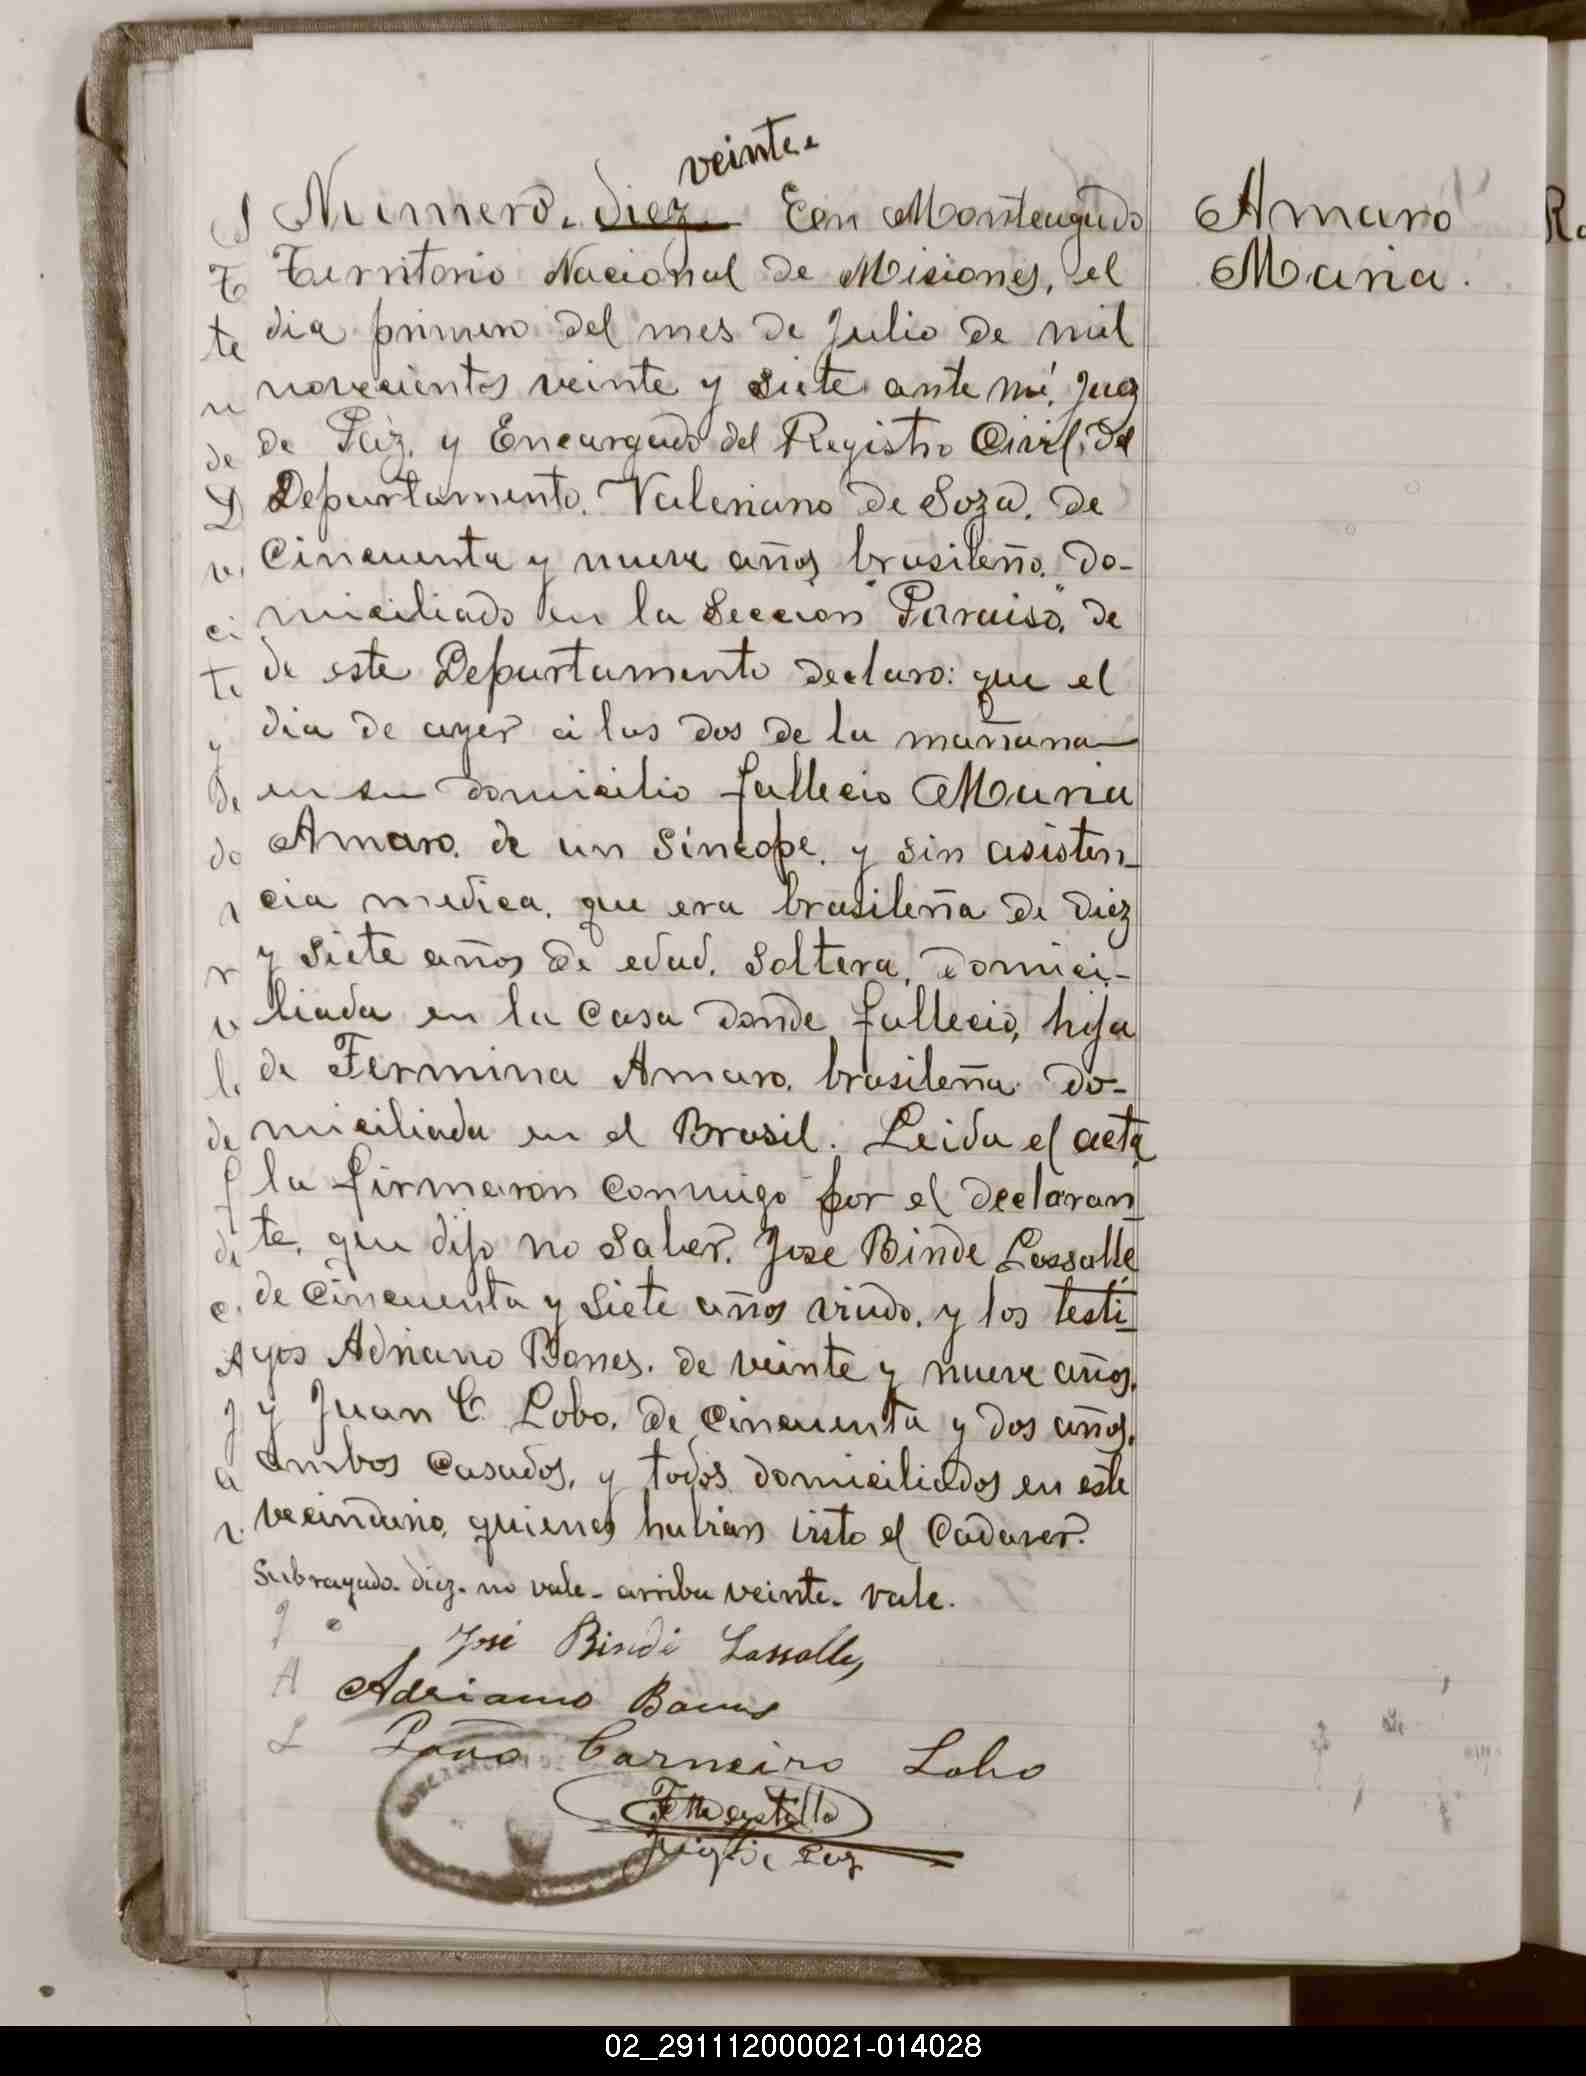 veinte.
Numero. diez En Monteagudo
Territorio Nacional de Misiones, el
dia primero del mes de Julio de mil
novecientos veinte y siete ante mí, Juez
de Paz, y Encargado del Registro Civil, del
Departamento. Valeriano de Soza, de
Cincuenta y nueve años, brasileño. do-
miciliado en la Seccion "Paraiso", de
de este Departamento declaro: que el
dia de ayer á las dos de la mañana
en su domicilio fallecio Maria
Amaro. de un Síncope. y sin asisten-
cia medica. que era brasileña de diez
y siete años de edad. Soltera, domici-
liada en la Casa donde fallecio, hija
de Fermina Amaro. brasileña do-
miciliada en el Brasil. Leida el acta
la firmaron conmigo por el declaran
te, que dijo no Saber. Jose Binde Lassalle
de Cincuenta y Siete años viudo, y los testi-
gos Adriano Bones. de veinte y nueve años.
y Juan C. Lobo. de Cincuenta y dos años.
ambos Casados, y todos domiciliados en este
vecindario, quienes habian visto el Cadaver.
Subrayado. diez. no vale - arriba veinte. vale.
José Binde Lassalle
Adriano
Carneiro Lobo
Juez de Paz
Amaro
Maria.
02_291112000021-014028